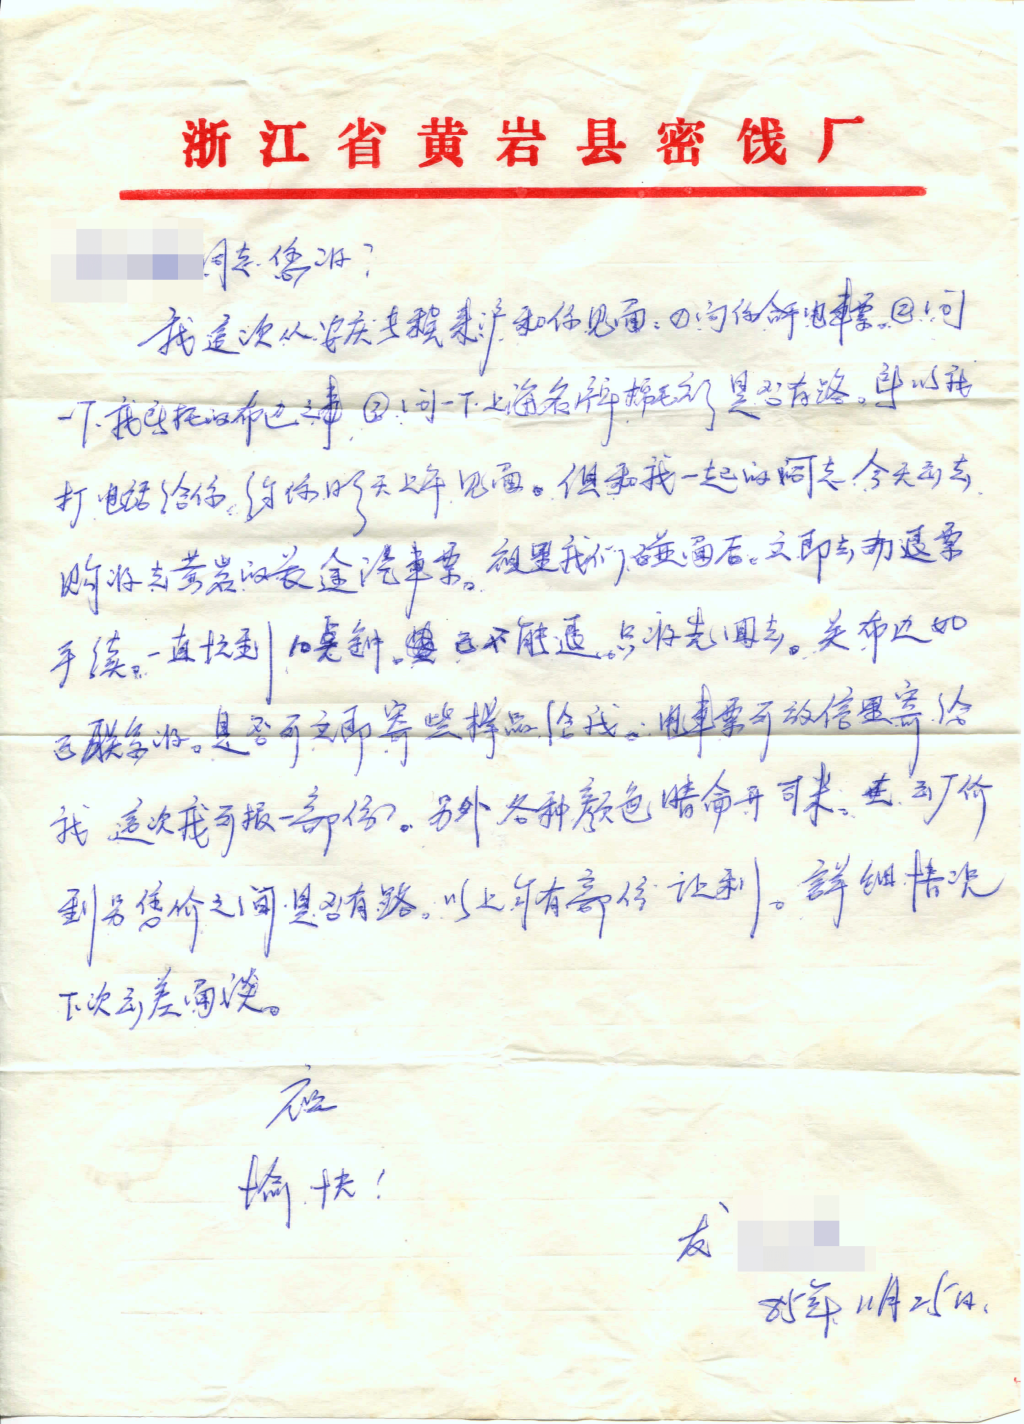 浙江省黄岩县密饯厂
同志您好?
我这次从安庆专程来沪和你见面。①问你合千电車票。②问
一下我所托的布边之事③问一下上海名牌棉毛衫是否有路。所以我
打电话给你,约你明天上午见面。但和我一起的同志今天要去
购好去黄岩的长途汽車票。碰面后。立即去办退票
手续。一直找到10点钟。已不能退。只好先回去。关布边如
已联系好。是否可立即寄些样品给我。車票可放信里寄给
我 这次我可报一部份。另外各种颜色 司米。出厂价
到另售价之间是否有路。以上年有部份让利。詳细情况
下次出差面谈。
愉快!
友
85年11月25日.